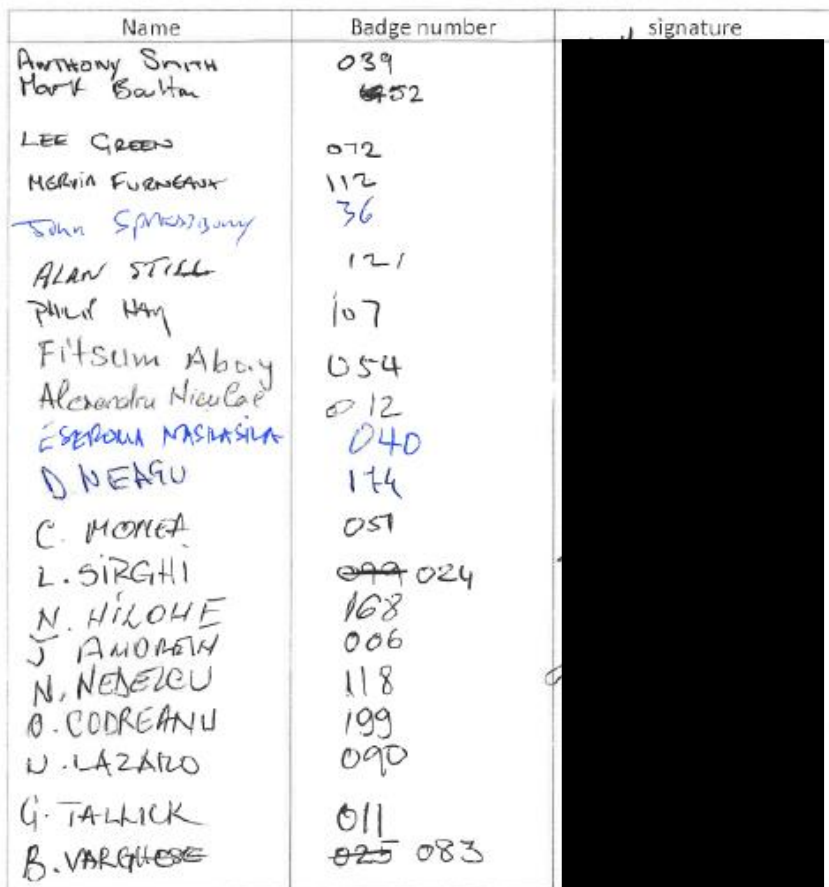 Name Badge number signature
ANTHONY SMITH 039
Mark Boulton 052
LEE GREEN 072
MERVIN FURNEAUX 112
John 36
ALAN STILL 121
PHILIP HAY 107
Fitsum Abay 054
Alexandru Niculae 012
ESEROMA NASILASILA 040
D NEAGU 174
C. MONEA 051
L. SIRGHI 099 024
N. HILOHE 168
J 006
N. NEDELCU 118
O. CODREANU 199
N. LAZARO 090
G. TALLICK 011
B. VARGHESE 025 083